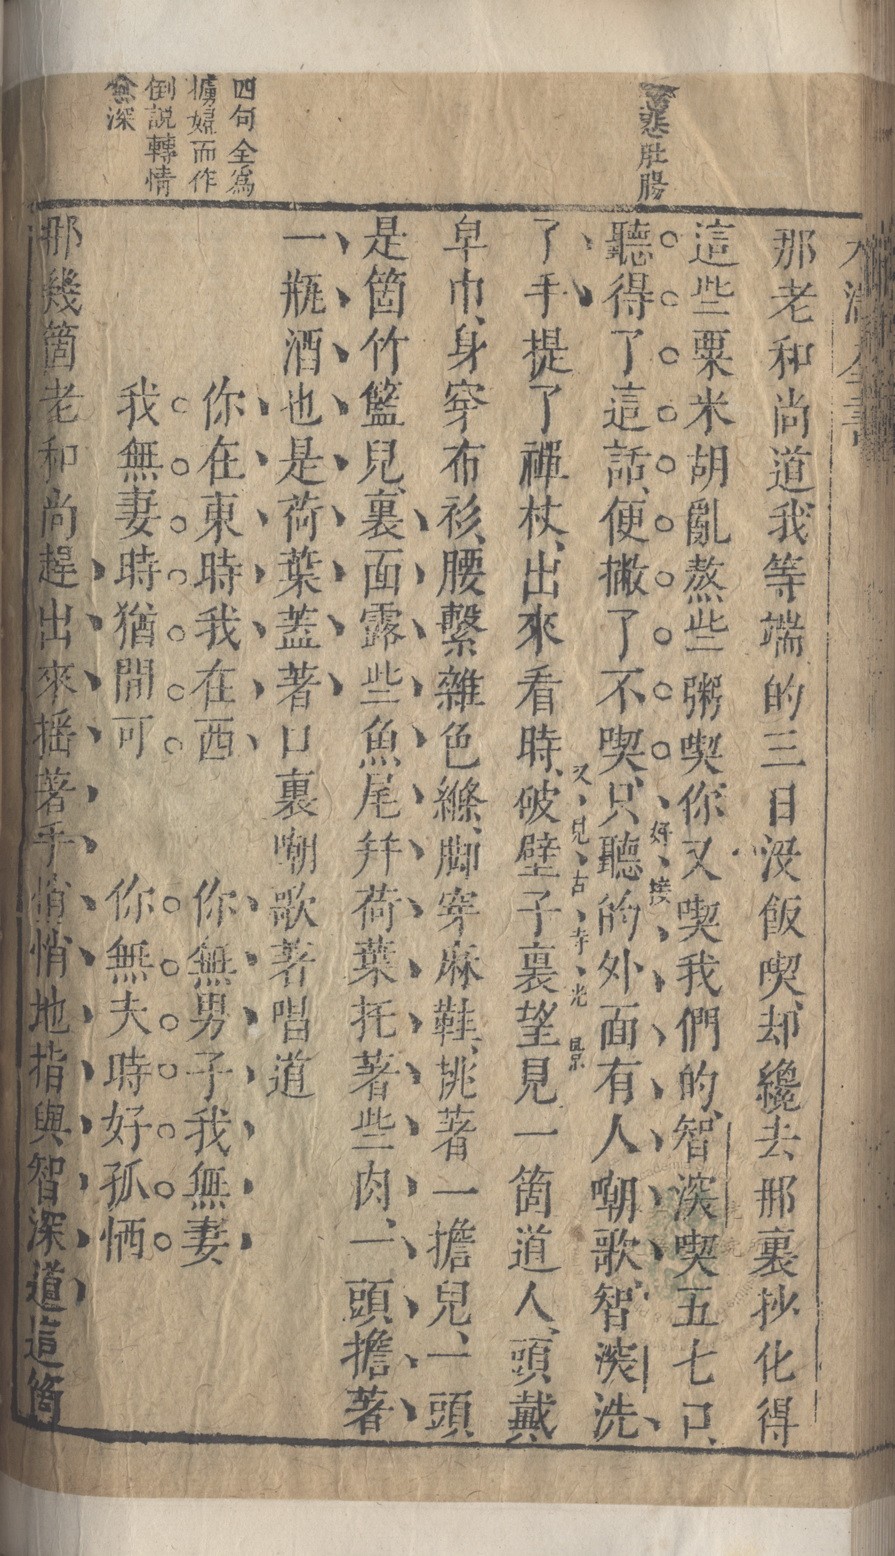 那老和尚道我等端的三日沒飯喫、却纔去那裏抄化得
這些粟米胡亂熬些粥喫、你又喫我們的、智深喫五七口、
聽得了這話、便撇了不喫、只聽的外面有人嘲歌、智深洗
好挨
了手提了禪杖、出來看時、破壁子裏望見一箇道人、頭戴
又見古寺光景
皁巾、身穿布衫、腰繫雜色縧、脚穿麻鞋、挑著一擔兒、一頭
是箇竹籃兒、裏面露些魚尾幷荷葉托著些肉、一頭擔著
一瓶酒也是荷葉蓋著口裏嘲歌著唱道
你在東時我在西　你無男子我無妻
我無妻時猶閒可　你無夫時好孤恓
那幾箇老和尚趕出來搖著手悄悄地指與智深道這箇
慈悲肚腸
四句全爲
擄婦而作
倒說轉情
愈深